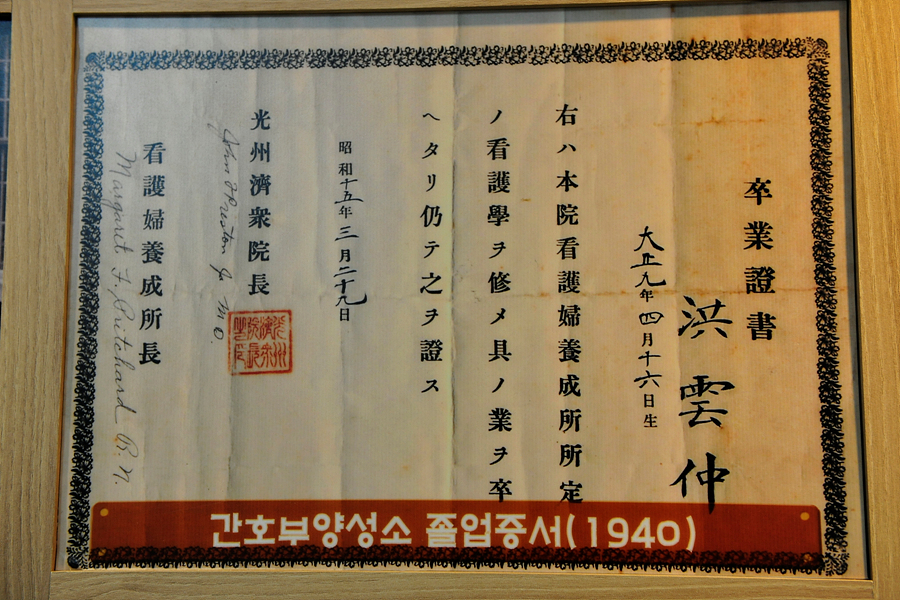 卒業證書
洪雲仲
大正九年四月十六日生
右ハ本院看護婦養成所所定
ノ看護學ヲ修メ具ノ業ヲ卒
ヘタリ仍テ之ヲ證ス
昭和十五年三月二十九日
光州濟衆院長
John Preston Jr M.D.
看護婦養成所長
Margaret F. Pritchard R.N.
간호부양성소 졸업증서(1940)